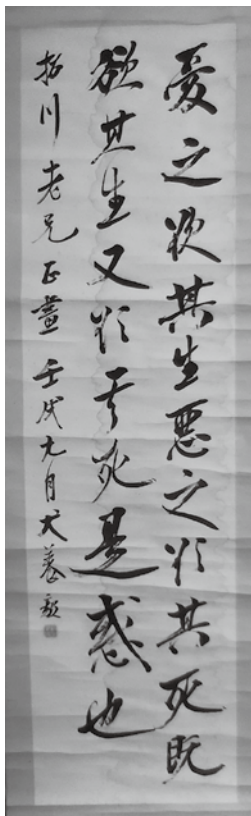 愛之欲其生惡之欲其死既
欲其生又欲其死是惑也
拓川老兄正畫 壬戌九月犬養毅